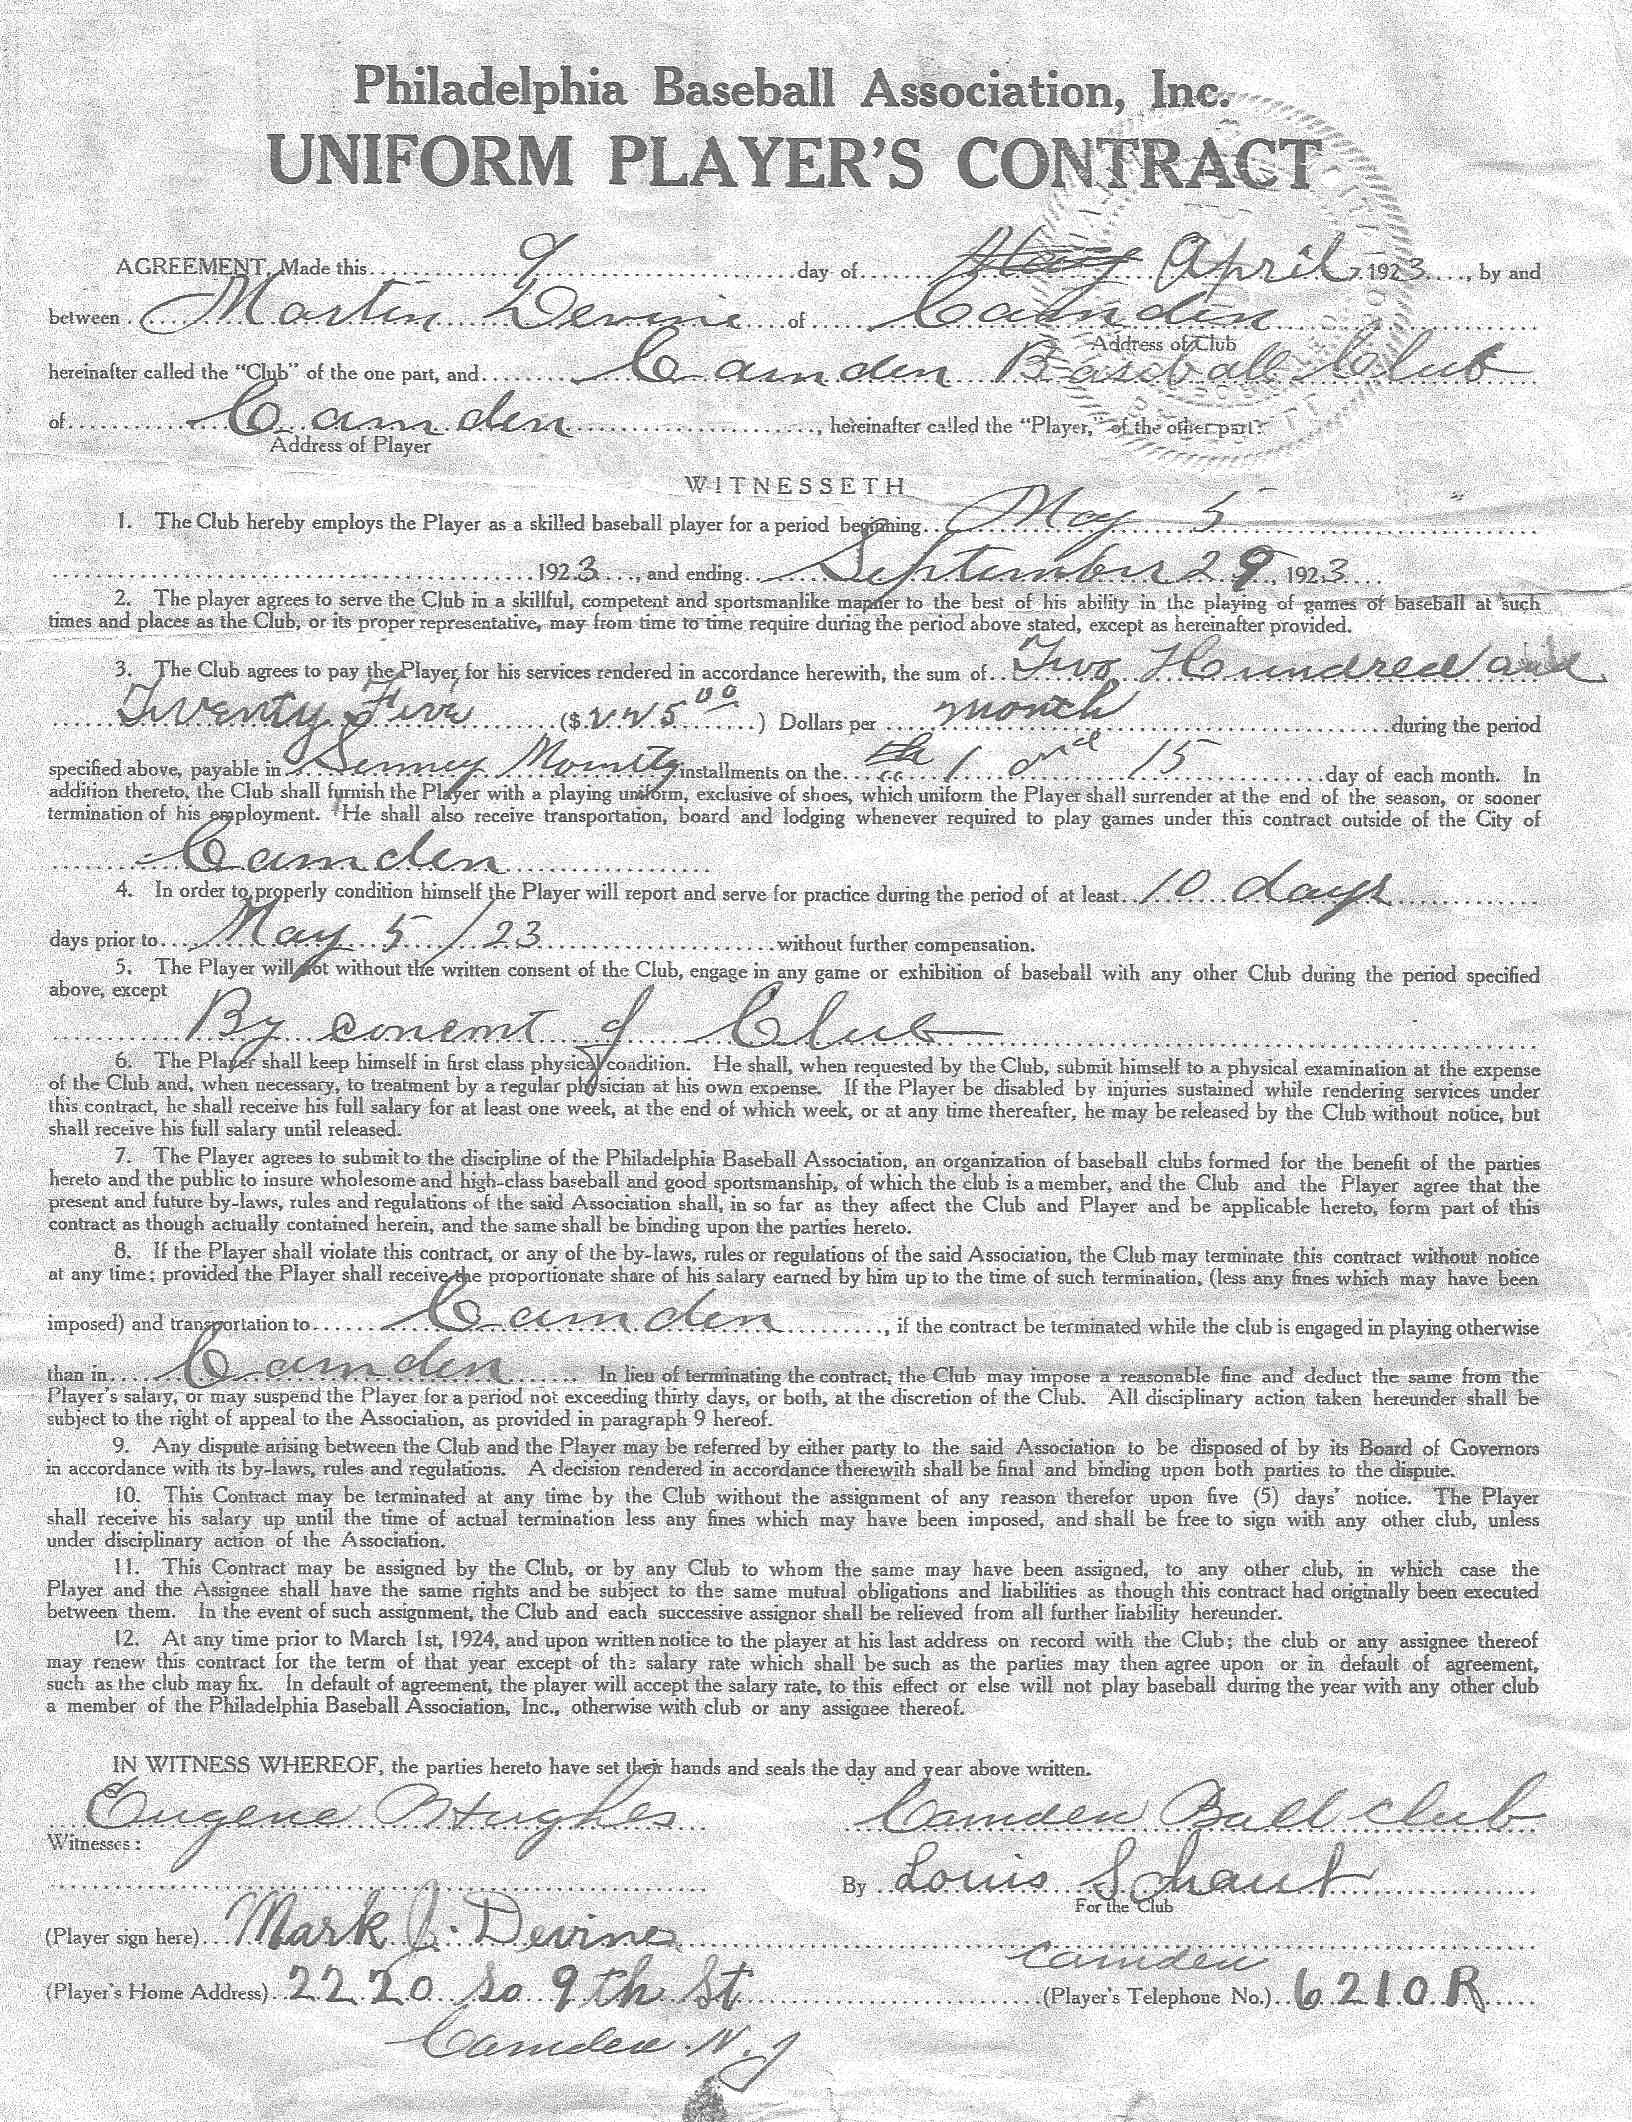 Philadelphia Baseball Association, Inc.
UNIFORM PLAYER'S CONTRACT
AGREEMENT, Made this 9 day of May April 1923, by and
between Martin Devine of Camden
Address of Club
hereinafter called the "Club" of the one part, and Camden Baseball Club
of Camden, hereinafter called the "Player," of the other part:
Address of Player
WITNESSETH
1. The Club hereby employs the Player as a skilled baseball player for a period beginning May 5
1923, and ending September 29, 1923
2. The player agrees to serve the Club in a skillful, competent and sportsmanlike manner to the best of his ability in the playing of games of baseball at such
times and places as the Club, or its proper representative, may from time to time require during the period above stated, except as hereinafter provided.
3. The Club agrees to pay the Player for his services rendered in accordance herewith, the sum of Two Hundred and
Twenty Five ($225 00) Dollars per month during the period
specified above, payable in installments on the 1 and 15 day of each month. In
addition thereto, the Club shall furnish the Player with a playing uniform, exclusive of shoes, which uniform the Player shall surrender at the end of the season, or sooner
termination of his employment. He shall also receive transportation, board and lodging whenever required to play games under this contract outside of the City of
Camden
4. In order to properly condition himself the Player will report and serve for practice during the period of at least 10 days
days prior to May 5/23 without further compensation.
5. The Player will not without the written consent of the Club, engage in any game or exhibition of baseball with any other Club during the period specified
above, except
By concent of Club
6. The Player shall keep himself in first class physical condition. He shall, when requested by the Club, submit himself to a physical examination at the expense
of the Club and, when necessary, to treatment by a regular physician at his own expense. If the Player be disabled by injuries sustained while rendering services under
this contract, he shall receive his full salary for at least one week, at the end of which week, or at any time thereafter, he may be released by the Club without notice, but
shall receive his full salary until released.
7. The Player agrees to submit to the discipline of the Philadelphia Baseball Association, an organization of baseball clubs formed for the benefit of the parties
hereto and the public to insure wholesome and high-class baseball and good sportsmanship, of which the club is a member, and the Club and the Player agree that the
present and future by-laws, rules and regulations of the said Association shall, in so far as they affect the Club and Player and be applicable hereto, form part of this
contract as though actually contained herein, and the same shall be binding upon the parties hereto.
8. If the Player shall violate this contract, or any of the by-laws, rules or regulations of the said Association, the Club may terminate this contract without notice
at any time; provided the Player shall receive the proportionate share of his salary earned by him up to the time of such termination, (less any fines which may have been
imposed) and transportation to Camden, if the contract be terminated while the club is engaged in playing otherwise
than in Camden. In lieu of terminating the contract, the Club may impose a reasonable fine and deduct the same from the
Player's salary, or may suspend the Player for a period not exceeding thirty days, or both, at the discretion of the Club. All disciplinary action taken hereunder shall be
subject to the right of appeal to the Association, as provided in paragraph 9 hereof.
9. Any dispute arising between the Club and the Player may be referred by either party to the said Association to be disposed of by its Board of Governors
in accordance with its by-laws, rules and regulations. A decision rendered in accordance therewith shall be final and binding upon both parties to the dispute.
10. This Contract may be terminated at any time by the Club without the assignment of any reason therefor upon five (5) days' notice. The Player
shall receive his salary up until the time of actual termination less any fines which may have been imposed, and shall be free to sign with any other club, unless
under disciplinary action of the Association.
11. This Contract may be assigned by the Club, or by any Club to whom the same may have been assigned, to any other club, in which case the
Player and the Assignee shall have the same rights and be subject to the same mutual obligations and liabilities as though this contract had originally been executed
between them. In the event of such assignment, the Club and each successive assignor shall be relieved from all further liability hereunder.
12. At any time prior to March 1st, 1924, and upon written notice to the player at his last address on record with the Club; the club or any assignee thereof
may renew this contract for the term of that year except of the salary rate which shall be such as the parties may then agree upon or in default of agreement,
such as the club may fix. In default of agreement, the player will accept the salary rate, to this effect or else will not play baseball during the year with any other club
a member of the Philadelphia Baseball Association, Inc., otherwise with club or any assignee thereof.
IN WITNESS WHEREOF, the parties hereto have set their hands and seals the day and year above written.
Eugene Hughes Camden Ball Club
Witnesses:
By Louis Schaut
For the Club
(Player sign here) Mark J. Devine
Camden
(Player's Home Address) 2220 So 9th St (Player's Telephone No.) 6210R
Camden N.J